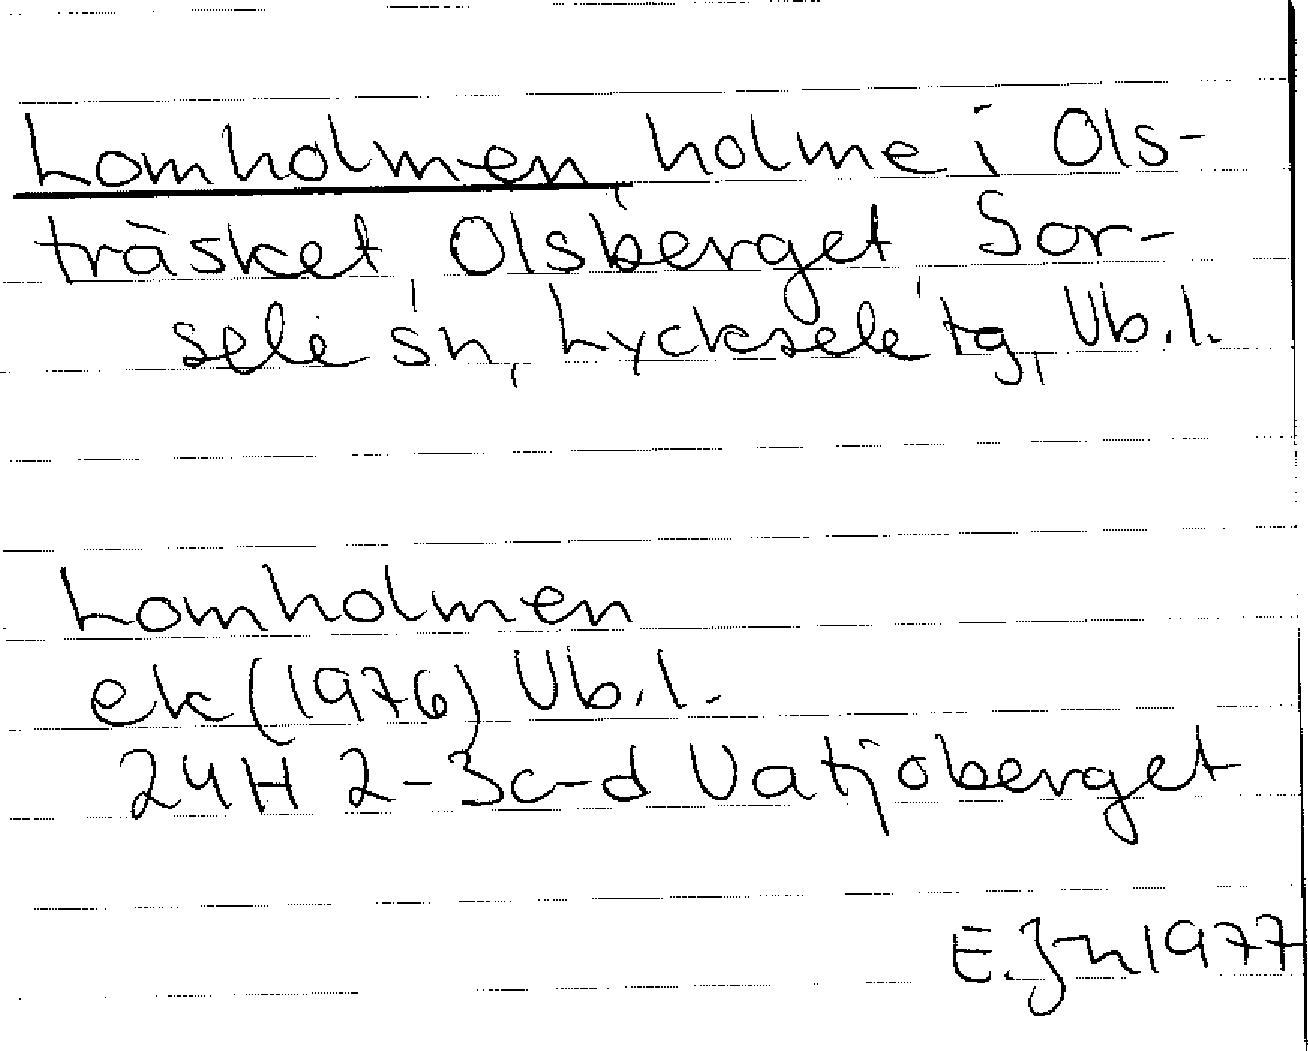 Lomholmen, holme i Ols-
träsket, Olsberget, Sor-
sele sn, Lycksele tg, Vb.l.
Lomholmen
ek (1976) Vb.l.
24H 2-3c-d Vatjoberget
E.J-n 1977